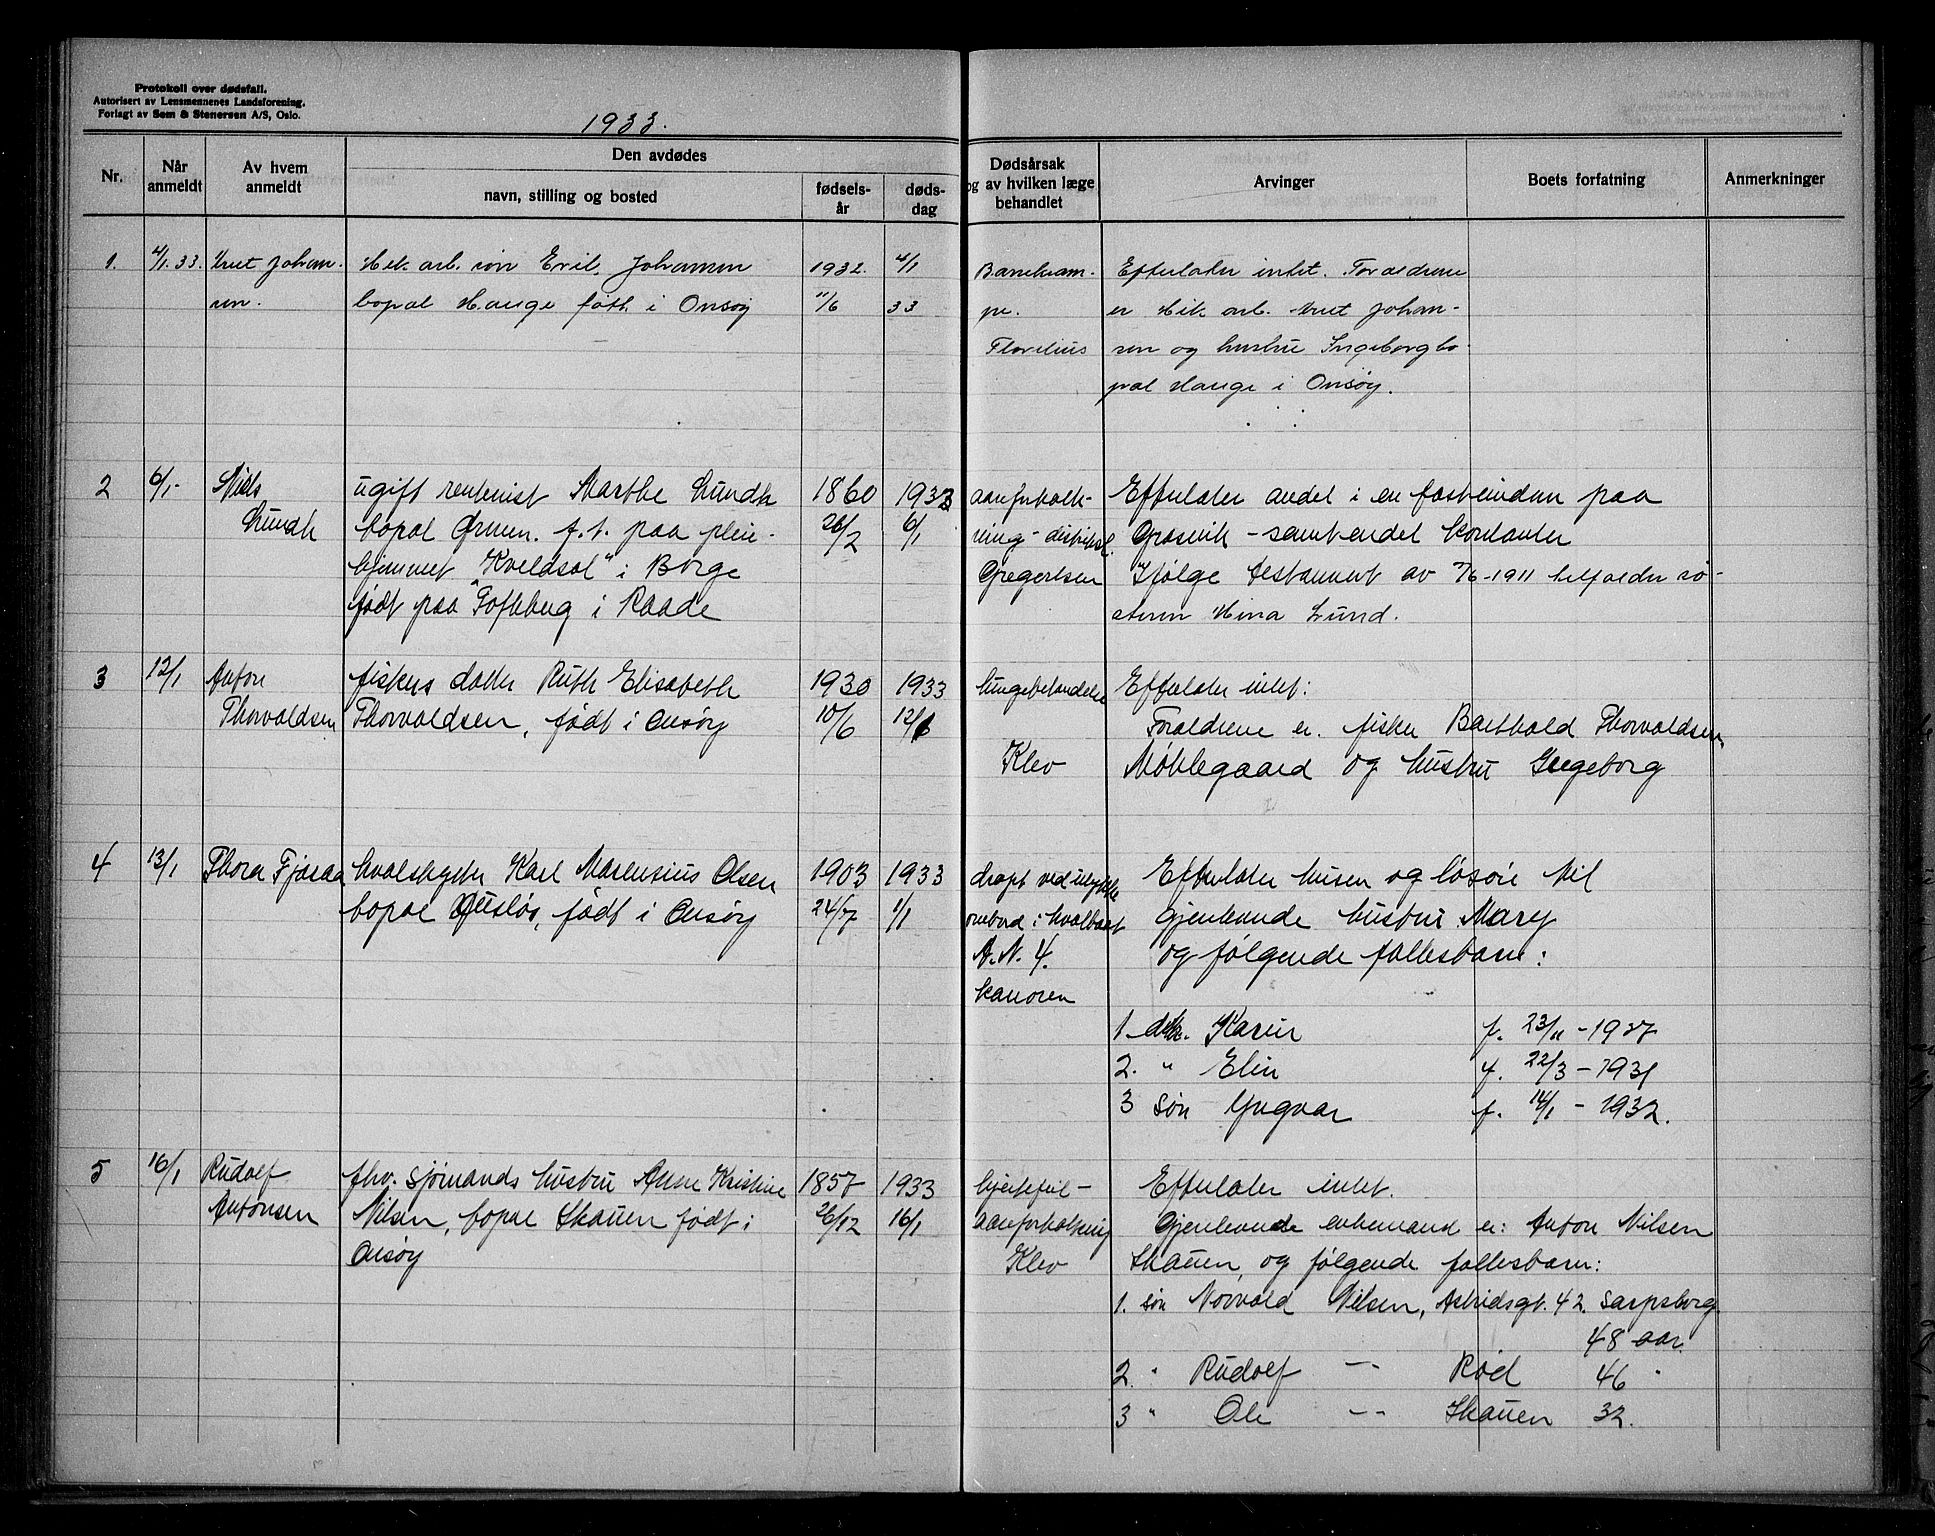 Protokoll over dødsfall.
Autorisert av Lensmennenes Landsforening.
Forlagt av Sem & Stenersen A/S, Oslo.
1933.
Nr.
Når anmeldt
Av hvem anmeldt
Den avdødes
navn, stilling og bosted
fødsels-år
døds-dag
Dødsårsak og av hvilken læge behandlet
Arvinger
Boets forfatning
Anmerkninger
1. 4/1. 33. Johan-
sen.
arb. søn Johansen
bopæl Hauge født i Onsøy
1932. 11/6
4/1 33
Barnekram-
pe.
Efterlater intet. Forældrene
er arb. Johan-
sen og hustru Ingeborg bo-
pæl Hauge i Onsøy.
2 6/1- Niels
Lundh
ugift rentenist Marthe Lundh
bopæl Ørmen. f. t. paa pleie-
hjemmet "Kveldsol" i Borge
født paa i Raade
1860 26/2
1933 6/1
aareforkalk-
ning - distriktsl.
Gregertsen
Efterlater andel i en fasteiendom paa
Græsvik - samt endel kontanter
Ifølge testament av 7/6-1911 tilfalder sø-
steren Lund.
3 12/1 Anton
Thorvaldsen
fiskers datter Ruth Elisabeth
Thorvaldsen, født i Onsøy
1930 10/6
1933 12/1
lungebetændelse
Klev
Efterlater intet:
Forældrene er. fisker Barthold Thorvaldsen
Møklegaard og hustru Ingeborg
4 13/1 Thora
hvalskytter Karl Marensius Olsen
bopæl født i Onsøy
1903 24/7
1933 1/1
dræpt ved ulykke
ombord i hvalbaat
A. N. 4.
kanonen
Efterlater husen og løsøre til
gjenlevende hustru Mary
og følgende fællesbarn:
1 dtr. Karin f. 23/11 - 1927
2. " Elin f. 22/3 - 1931
3 søn Yngvar f. 14/1 - 1932.
5 16/1 Rudolf
Antonsen
fhv. sjømands hustru Anne Kristine
Nilsen, bopæl Skauen født i
Onsøy
1857 26/12
1933 16/1
hjertefeil -
aareforkalkning
Klev
Efterlater intet.
Gjenlevende enkemand er: Anton Nilsen
Skauen, og følgende fællesbarn:
1. søn Norvald Nilsen, Astridsgt. 42. Sarpsborg
48 aar.
2. " Rudolf -"- Rød 46 "
3 " Ole -"- Skauen 32.